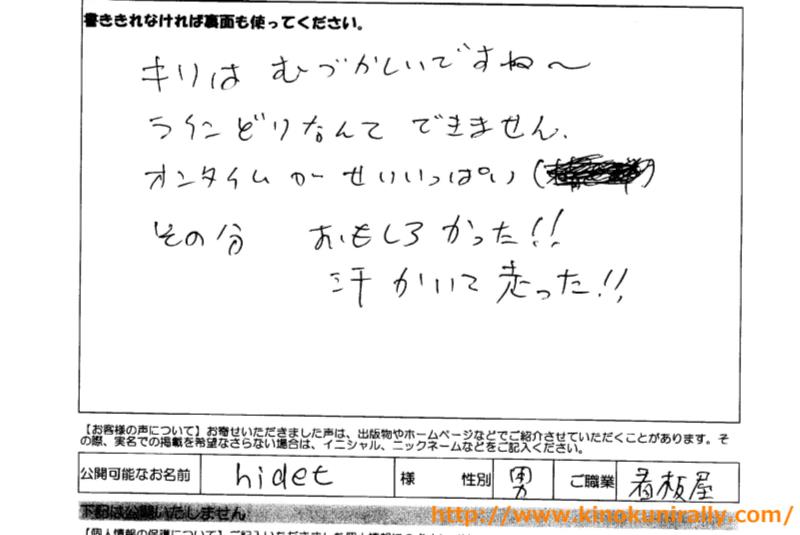 書ききれなければ裏面も使ってください。
キリは むづかしいですね〜
ラインどりなんて できません.
オンタイムがせいいっぱい(
その分 おもしろかった!!
汗かいて走った!!
【お客様の声について】お寄せいただきました声は、出版物やホームページなどでご紹介させていただくことがあります。そ
の際、実名での掲載を希望なさらない場合は、イニシャル、ニックネームなどをご記入ください。
公開可能なお名前 hidet 様 性別 男 ご職業 看板屋
下記は公開いたしません
http://www.kinokunirally.com/
【個人情報の保護について】